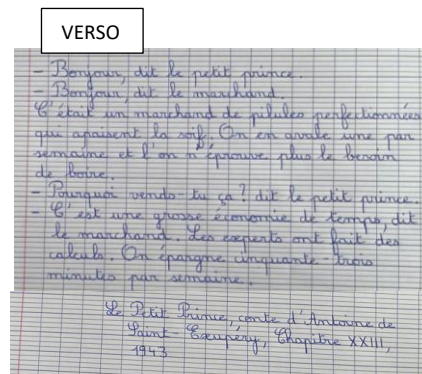 VERSO
- Bonjour, dit le petit prince.
- Bonjour, dit le marchand.
C'était un marchand de pilules perfectionnées
qui apaisent la soif. On en avale une par
semaine et l'on n'éprouve plus le besoin
de boire.
- Pourquoi vends-tu ça ? dit le petit prince.
- C'est une grosse économie de temps, dit
le marchand. Les experts ont fait des
calculs. On épargne cinquante-trois
minutes par semaine.
Le Petit Prince, conte d'Antoine de
Saint-Exupéry, Chapitre XXIII,
1943